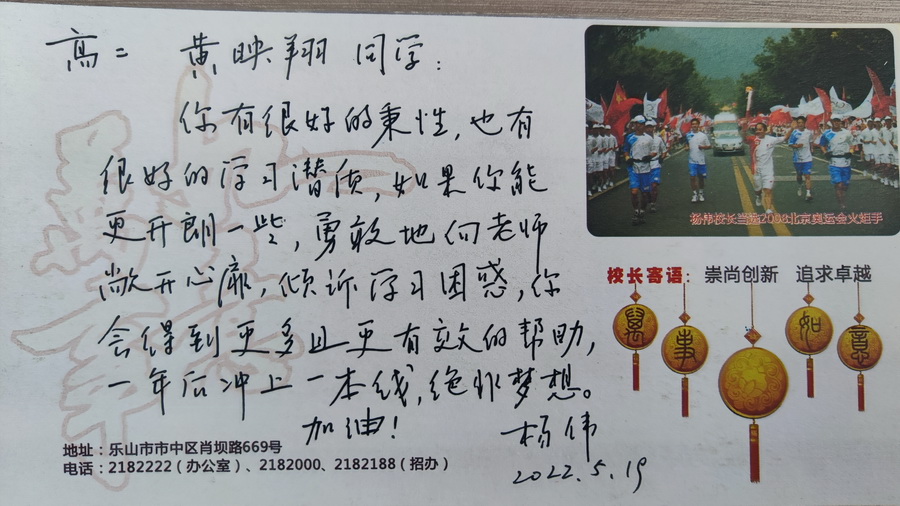 高二 黄映翔 同学：
你有很好的秉性，也有
很好的学习潜质，如果你能
更开朗一些，勇敢地向老师
敞开心扉，倾诉学习困惑，你
会得到更多且更有效的帮助，
一年后冲上一本线，绝非梦想。
加油！
杨伟
2022.5.19
地址：乐山市市中区肖坝路669号
电话：2182222（办公室）、2182000、2182188（招办）
杨伟校长当选2008北京奥运会火炬手
校长寄语：崇尚创新 追求卓越
万
事
如
意